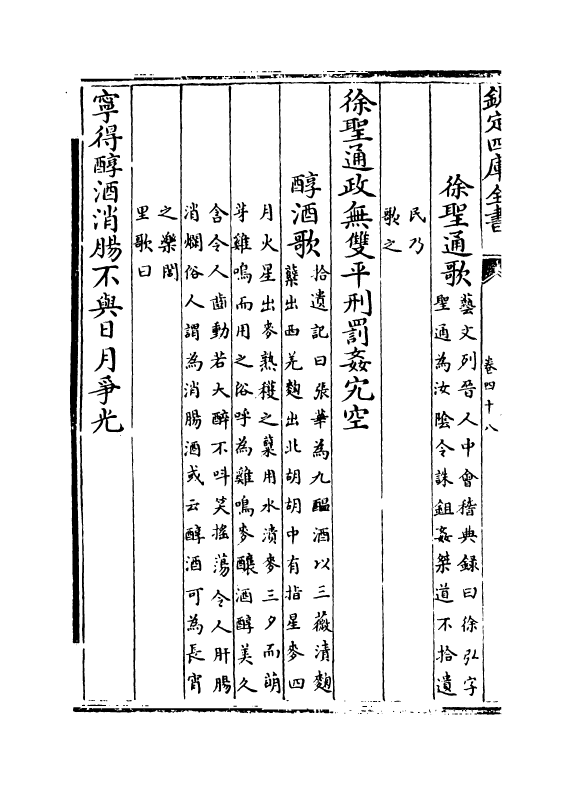 欽定四庫全書 卷四十八
徐聖通歌 藝文列晉人中會稽典録曰徐弘字
聖通為汝陰令誅鉏姦桀道不拾遺
民乃
歌之
徐聖通政無雙平刑罰姦宄空
醇酒歌 拾遺記曰張華為九醖酒以三薇清麴
蘖出西羌麴出北胡胡中有指星麥四
月火星出麥熟穫之蘖用水漬麥三夕而萌
芽雞鳴而用之俗呼為雞鳴麥釀酒醇美久
含令人齒動若大醉不呌笑搖蕩令人肝腸
消爛俗人謂為消腸酒或云醇酒可為長宵
之樂閭
里歌曰
寧得醇酒消腸不與日月爭光